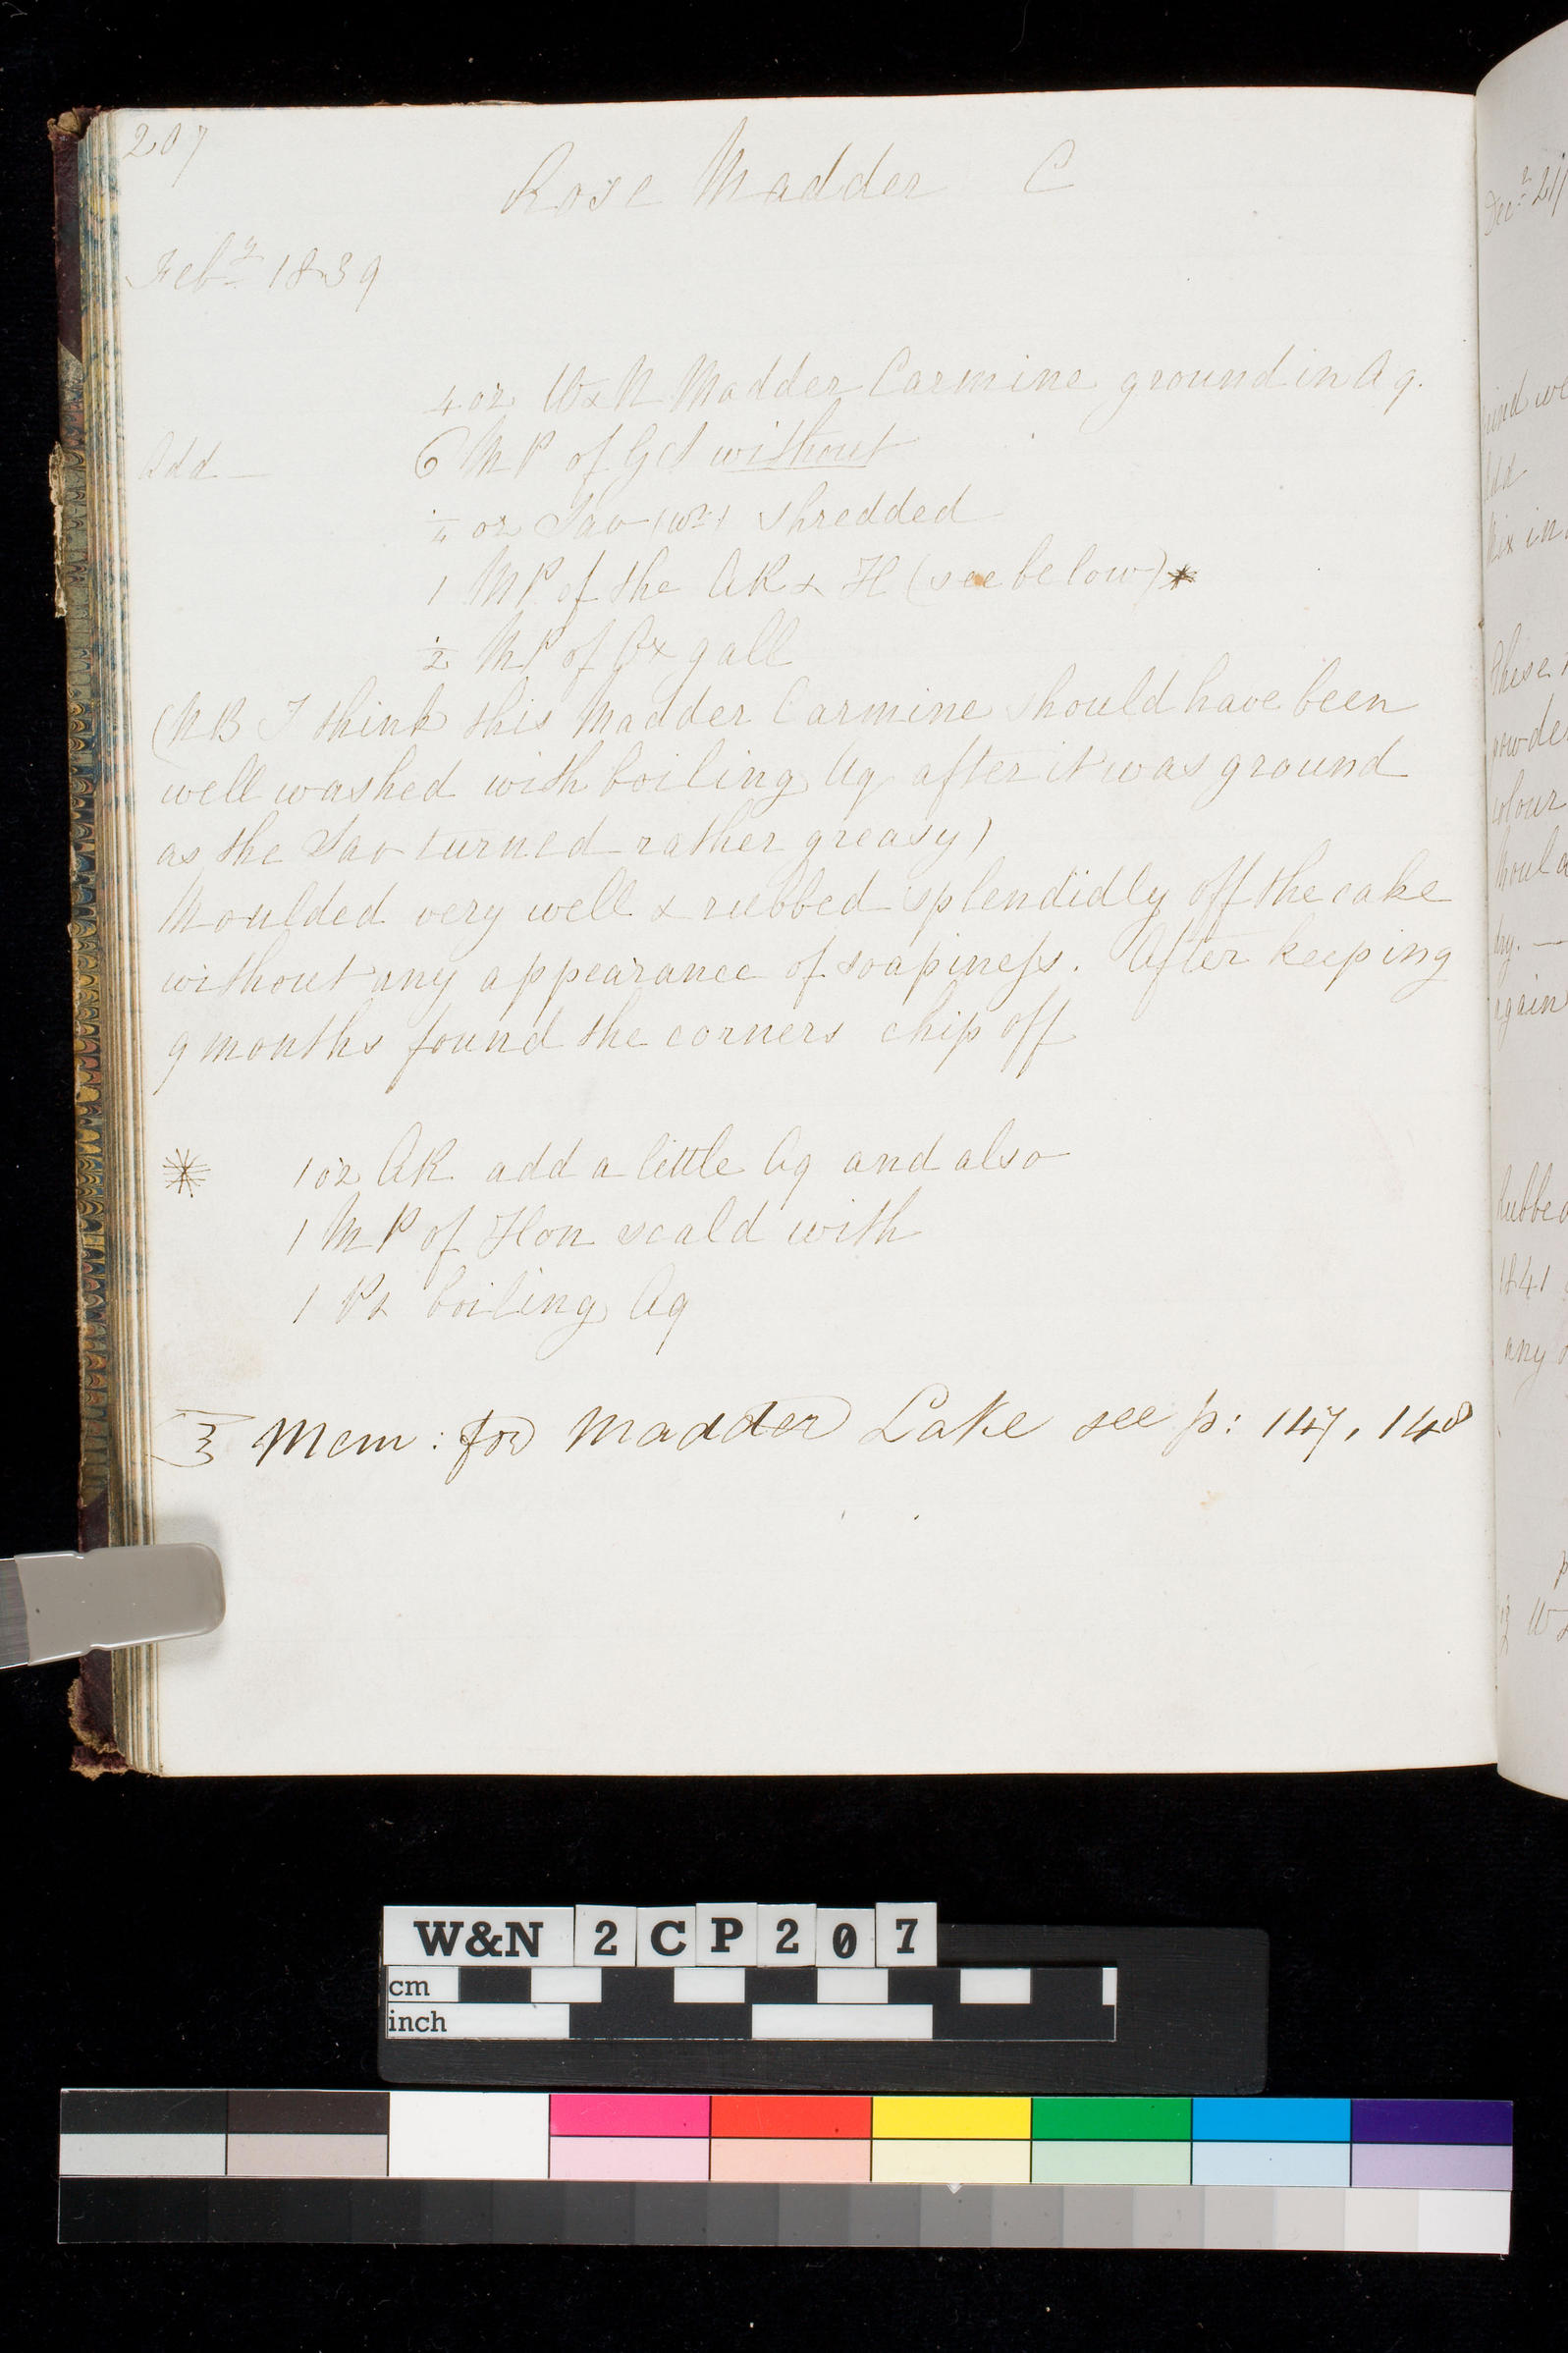 207
Rose Madder C
Feby 1839
4 oz W & N Madder Carmine ground in Aq.
Add — 6 MP of Gd without
1/4 oz Sav (Wt) shredded
1 MP of the AR & H (see below) *
1/2 MP of Ox gall
(NB I think this Madder Carmine should have been
well washed with boiling Aq after it was ground
as the Sav turned rather greasy)
Moulded very well & rubbed splendidly off the cake
without any appearance of soapiness. After keeping
9 months found the corners chip off
* 1 oz AR add a little Aq and also
1 MP of Hon scald with
1 boiling Aq
Mem: for Madder Lake see p: 147, 148
Decr 21
ind we
Add
Mix in
These
powde
colour
Mould
dry. —
again
Rubbed
1841
any
W&N 2CP207
cm
inch